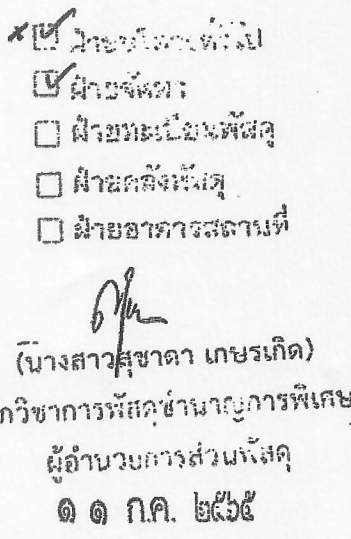 ฝ่ายบริหารทั่วไป
ฝ่ายจัดหา
ฝ่ายทะเบียนพัสดุ
ฝ่ายคลังพัสดุ
ฝ่ายอาคารสถานที่
(นางสาวสุชาดา เกษรเกิด)
กวิชาการพัสดุชำนาญการพิเศษ
ผู้อำนวยการส่วนพัสดุ
๑ ๑ ก.ค. ๒๕๖๕